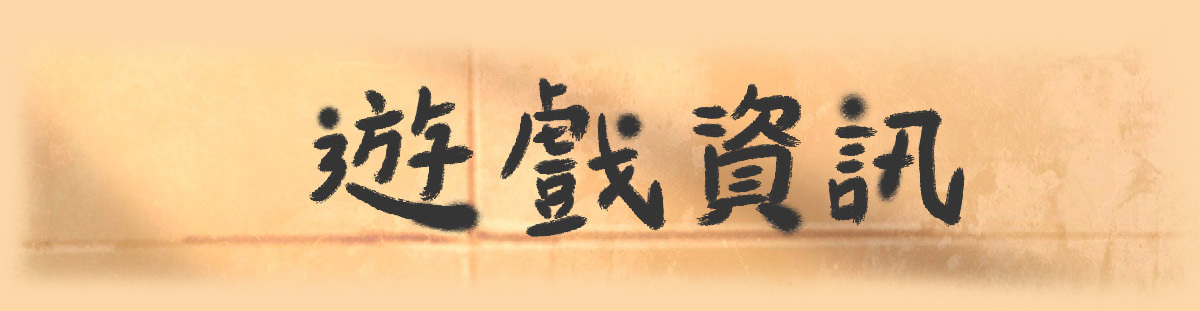 遊戲資訊